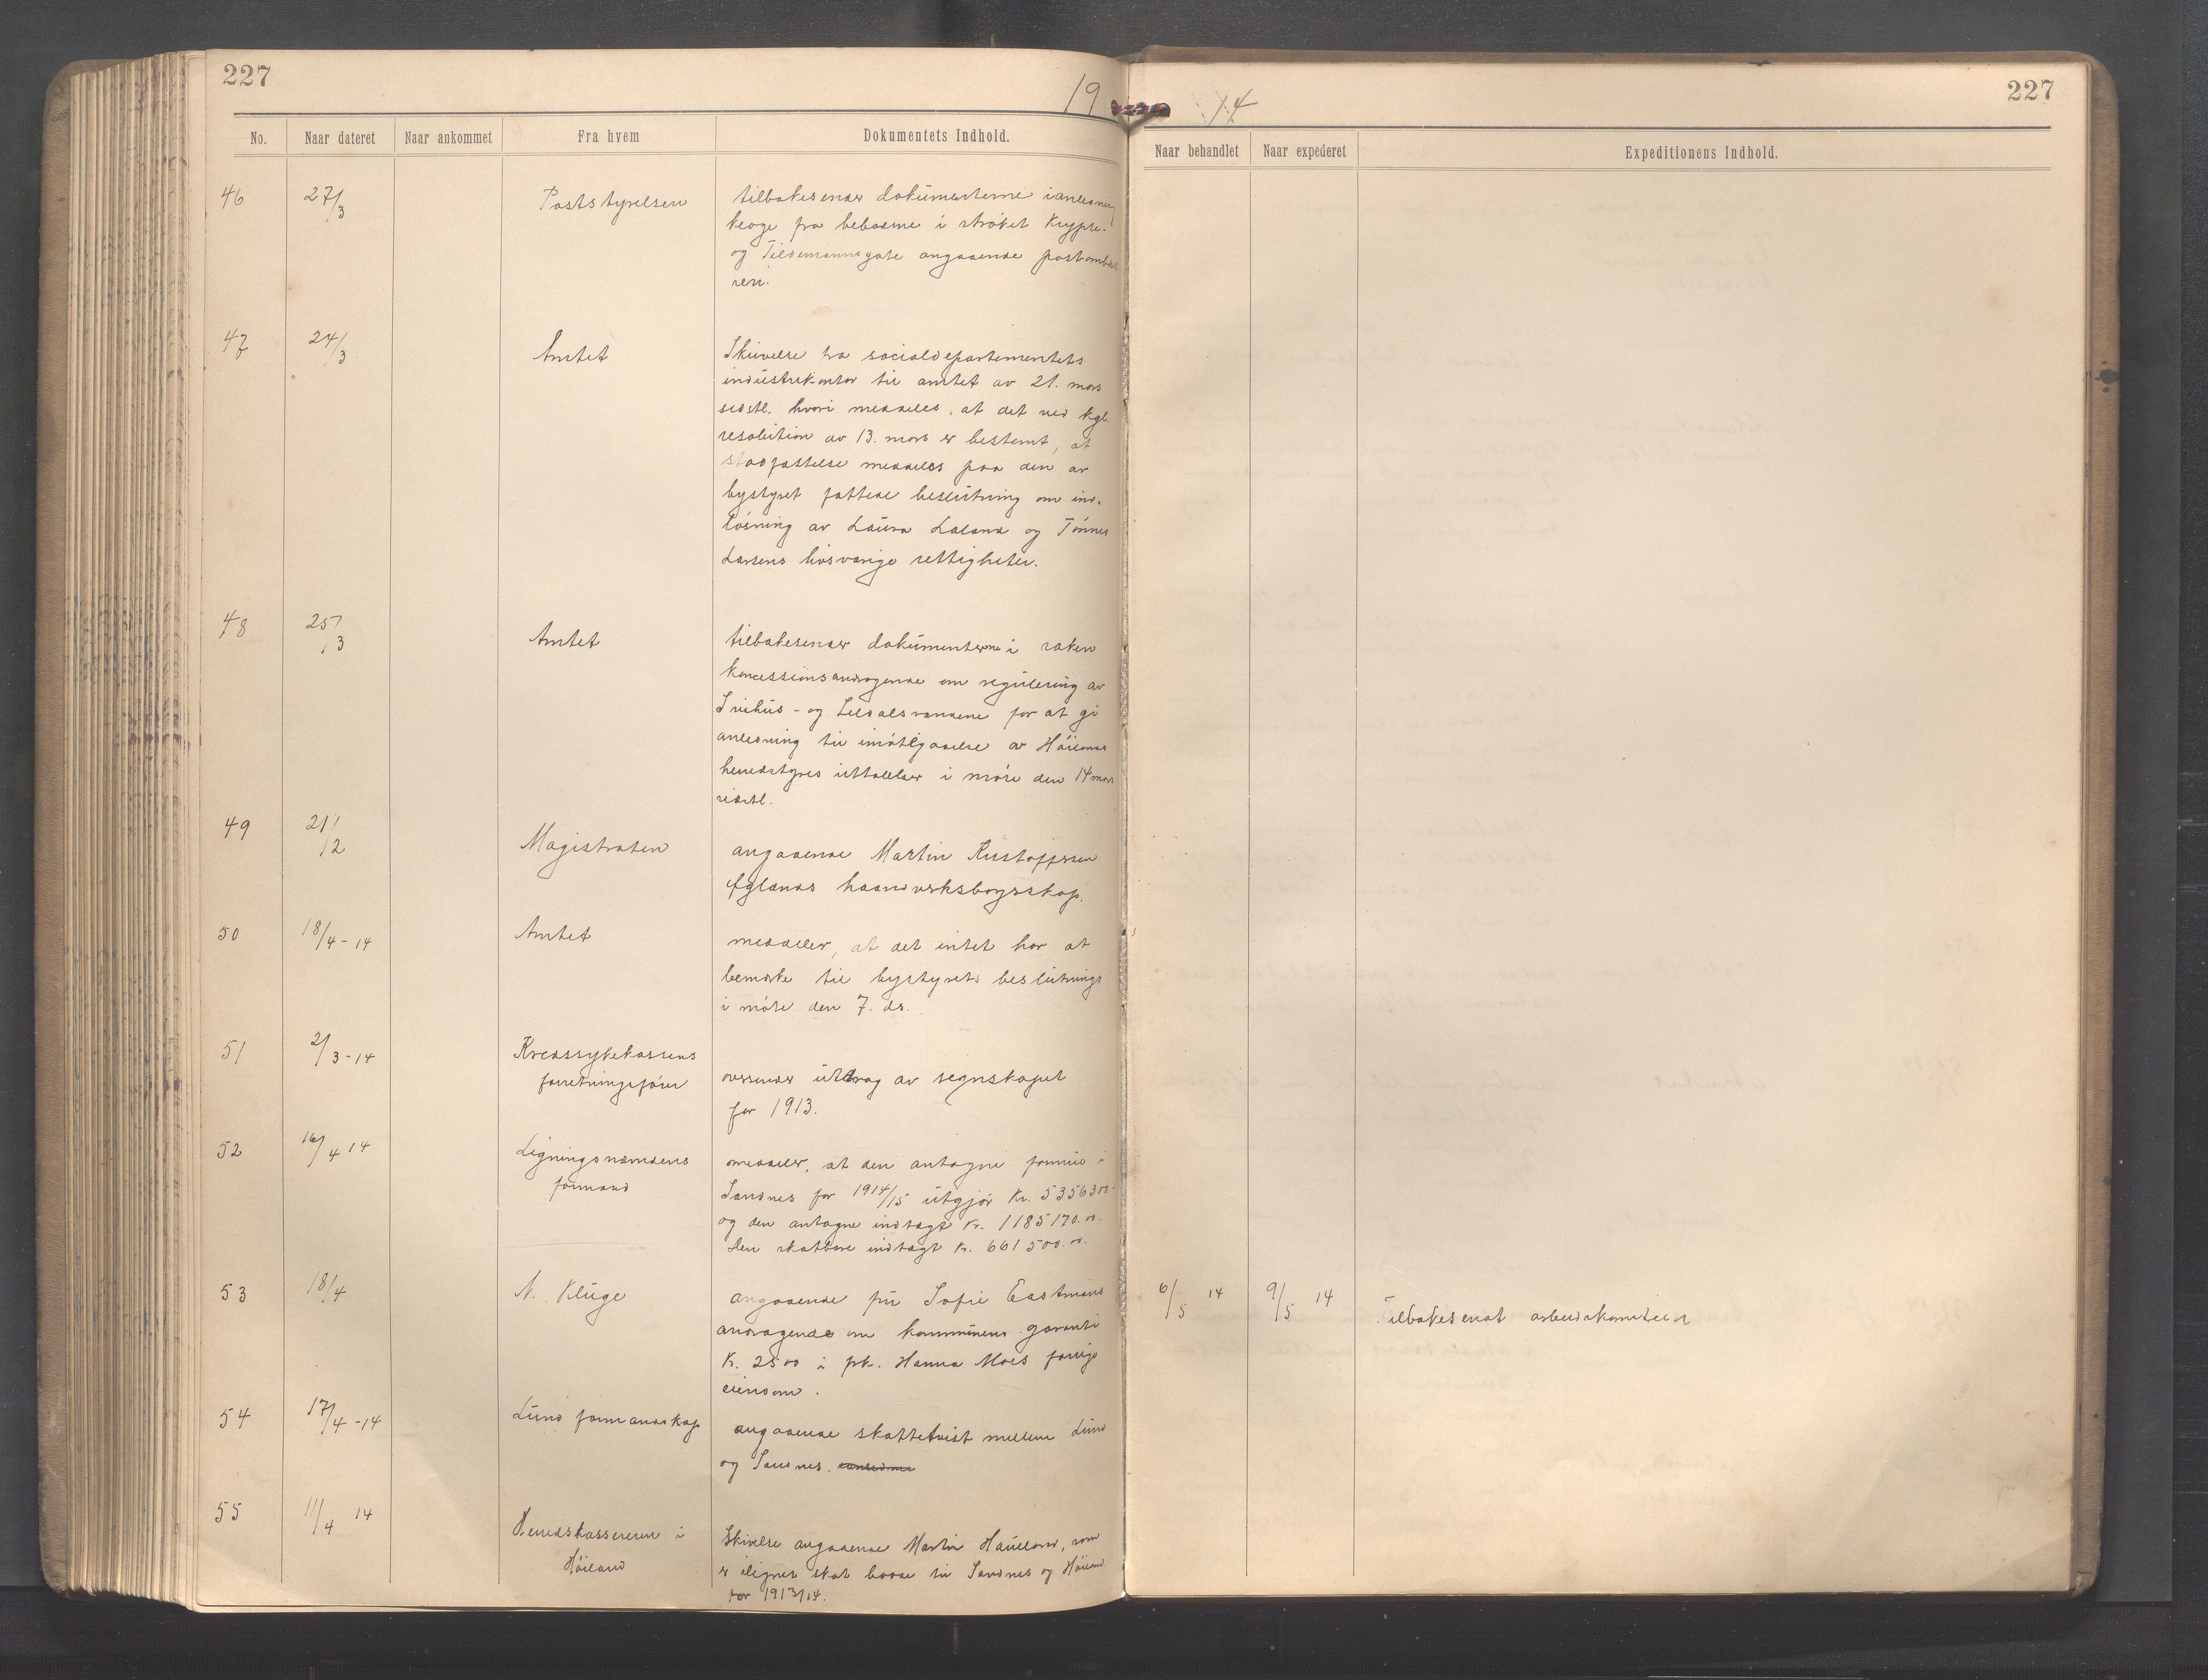 227
19
14
227
No. Naar dateret Naar ankommet Fra hvem Dokumentets Indhold.
Naar behandlet Naar expederet Expeditionens Indhold.
46 27/3 Poststyrelsen tilbakesender dokumenterne i anledning
klage fra beboerne i strøket
og Tildemannsgate angaaende postombær
ren.
47 24/3 Amtet Skrivelse fra socialdepartementets
industrikontor til amtet av 21. mars
sidstl. hvori meddeles, at det ved kgl.
resolution av 13. mars er bestemt, at
stadfæstelse meddeles paa den av
bystyret fattede beslutning om ind-
løsning av Laura Laland og Tønnes
Larsens livsvarige rettigheter.
48 25/3 Amtet tilbakesender dokumenterne i saken
koncessionsandragende om regulering av
Svihus- og Seldalsvandene for at gi
anledning til imøtegaaelse av Høilands
herredstyres uttalelser i møte den 14 mars
sidstl.
49 21/2 Magistraten angaaende Martin Kristoffersen
haandverksborgerskap.
50 18/4-14 Amtet meddeler, at det intet har at
bemerke til bystyrets beslutninger
i møte den 7. ds.
51 2/3-14 Kredssykekassens
forretningsfører oversender utdrag av regnskapet
for 1913.
52 16/4 14 Ligningsnemndens
formand meddeler, at den antagne formue i
Sandnes for 1914/15 utgjør Kr. 5356300.-
og den antagne indtægt Kr. 1185170.00.
Den skatbare indtægt Kr. 661500.00.
53 18/4 N. Kluge angaaende fru Sofie Eastmans
andragende om kommunens garanti
Kr. 2500 i frk. Hanna Moes forrige
eiendom.
6/5 14 9/5 14 Tilbakesendt arbeidskomiteen
54 17/4-14 Lund formandskap angaaende skattetvist mellem Lund
og Sandnes.
55 11/4 14 Herredskassereren i
Høiland Skrivelse angaaende Martin Haueland, som
er ilignet skat baade til Sandnes og Høiland
for 1913/14.